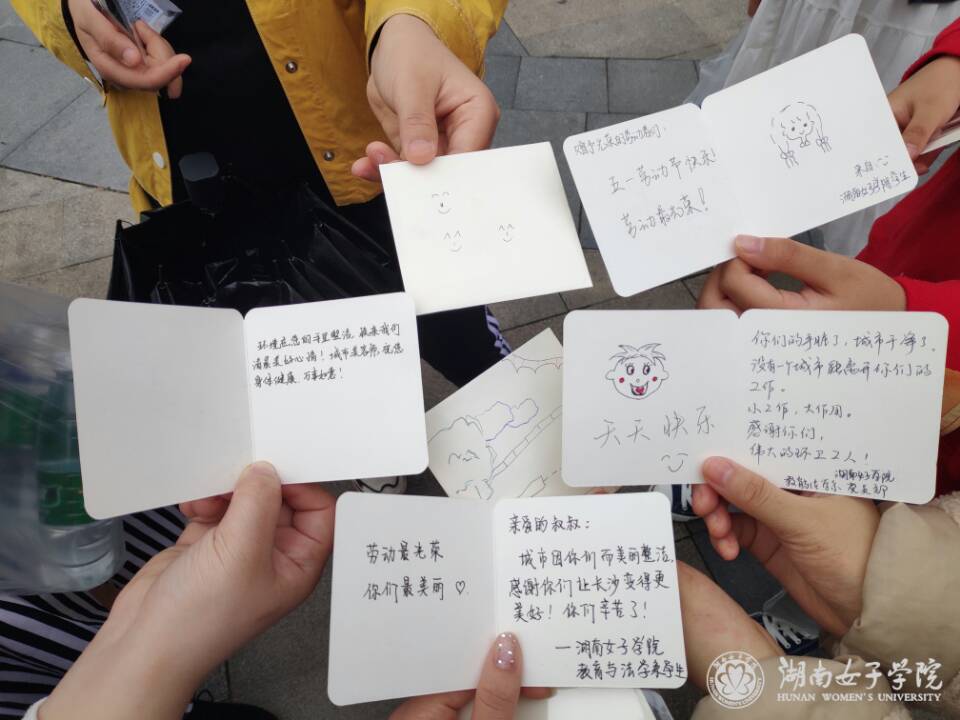 五一劳动节快乐!
劳动最光荣!
来自
湖南女子学院学生
环境在您的手里整洁,给来我们
清晨美好心情!城市美容师,祝您
身体健康,万事如意!
天天快乐
你们的手脏了,城市干净了。
没有一个城市能离开你们的
工作。
小工作,大作用。
感谢你们,
伟大的环卫工人!
湖南女子学院
劳动最光荣
你们最美丽♡
亲爱的叔叔:
城市因你们而美丽整洁,
感谢你们让长沙变得更
美好!你们辛苦了!
—湖南女子学院
教育与法学系学生
湖南女子学院
HUNAN WOMEN'S UNIVERSITY